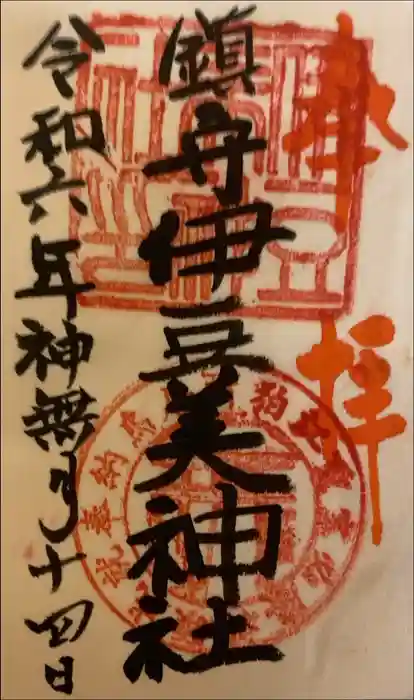 奉拝
鎮守伊豆美神社
令和六年神無月十四日